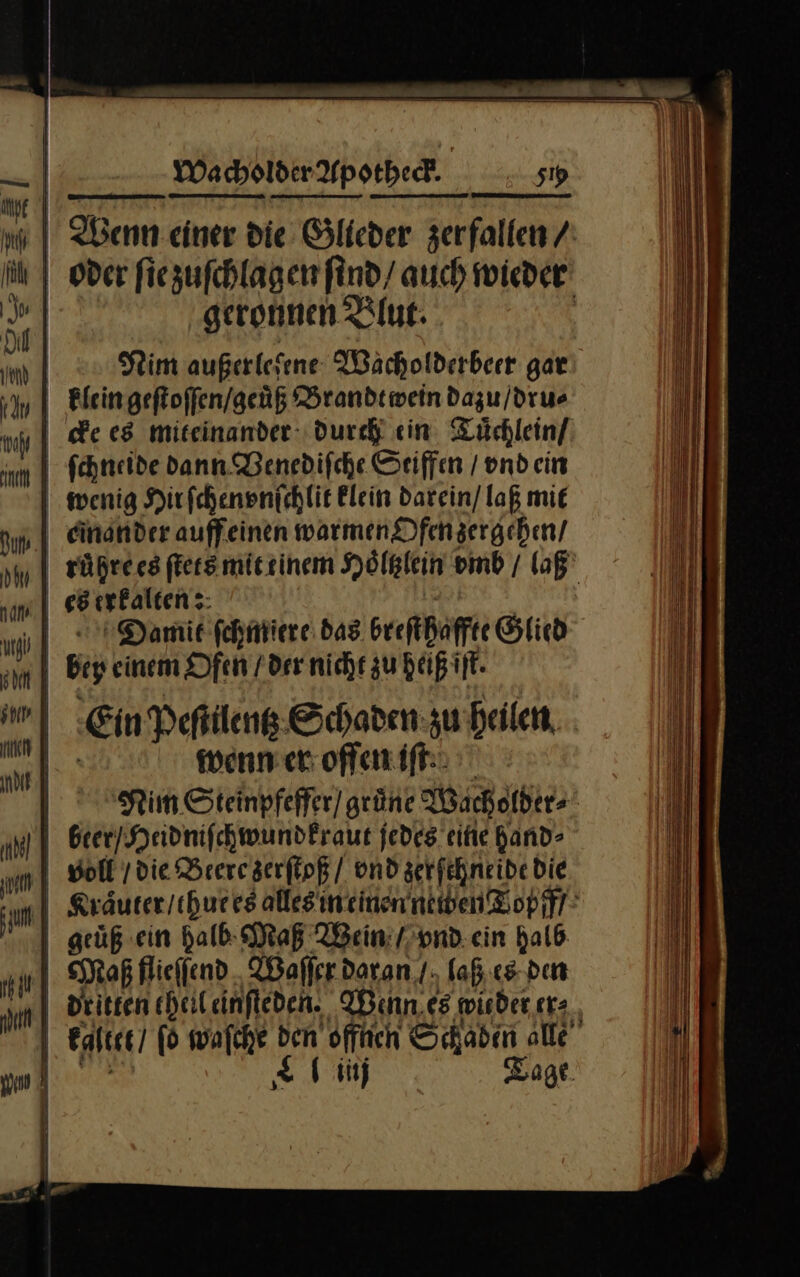 Wacholder Apotheck. 519
Wenn einer die Glieder zerfallen /
oder ſie zuſchlagen ſind / auch wieder
geronnen Blut.
Nim außerleſene Wacholderbeer gar
klein geſtoſſen / geuͤß Brandtwein dazu / dru⸗
cke es miteinander durch ein Tuͤchlein /
ſchneide dann Venediſche Seiffen / vnd ein
wenig Hirſchenvnſchlit klein darein / laß mit
einander auff einen warmen Ofen zergehen /
ruͤhre es ſtets mit einem Hoͤltzlein vmb / laß
es erkalten:
Damit ſchmiere das breſthaffte Glied
bey einem Ofen / der nicht zu heiß iſt.
Ein Peſtilentz Schaden zu heilen
wenn er offen iſt.
Nim Steinpfeffer / gruͤne Wacholder⸗
beer / Heidniſchwundkraut jedes eine hand⸗
voll / die Beere zerſtoß / vnd zerſchneide die
Kraͤuter / thue es alles in einen neiben Topff /
geuͤß ein halb Maß Wein / vnd ein halb
Maß flieſſend Waſſer daran / laß es den
dritten theil einſieden. Wenn es wieder er⸗
kaltet / ſo waſche den offnen Schaden alle
L l iiij Tage